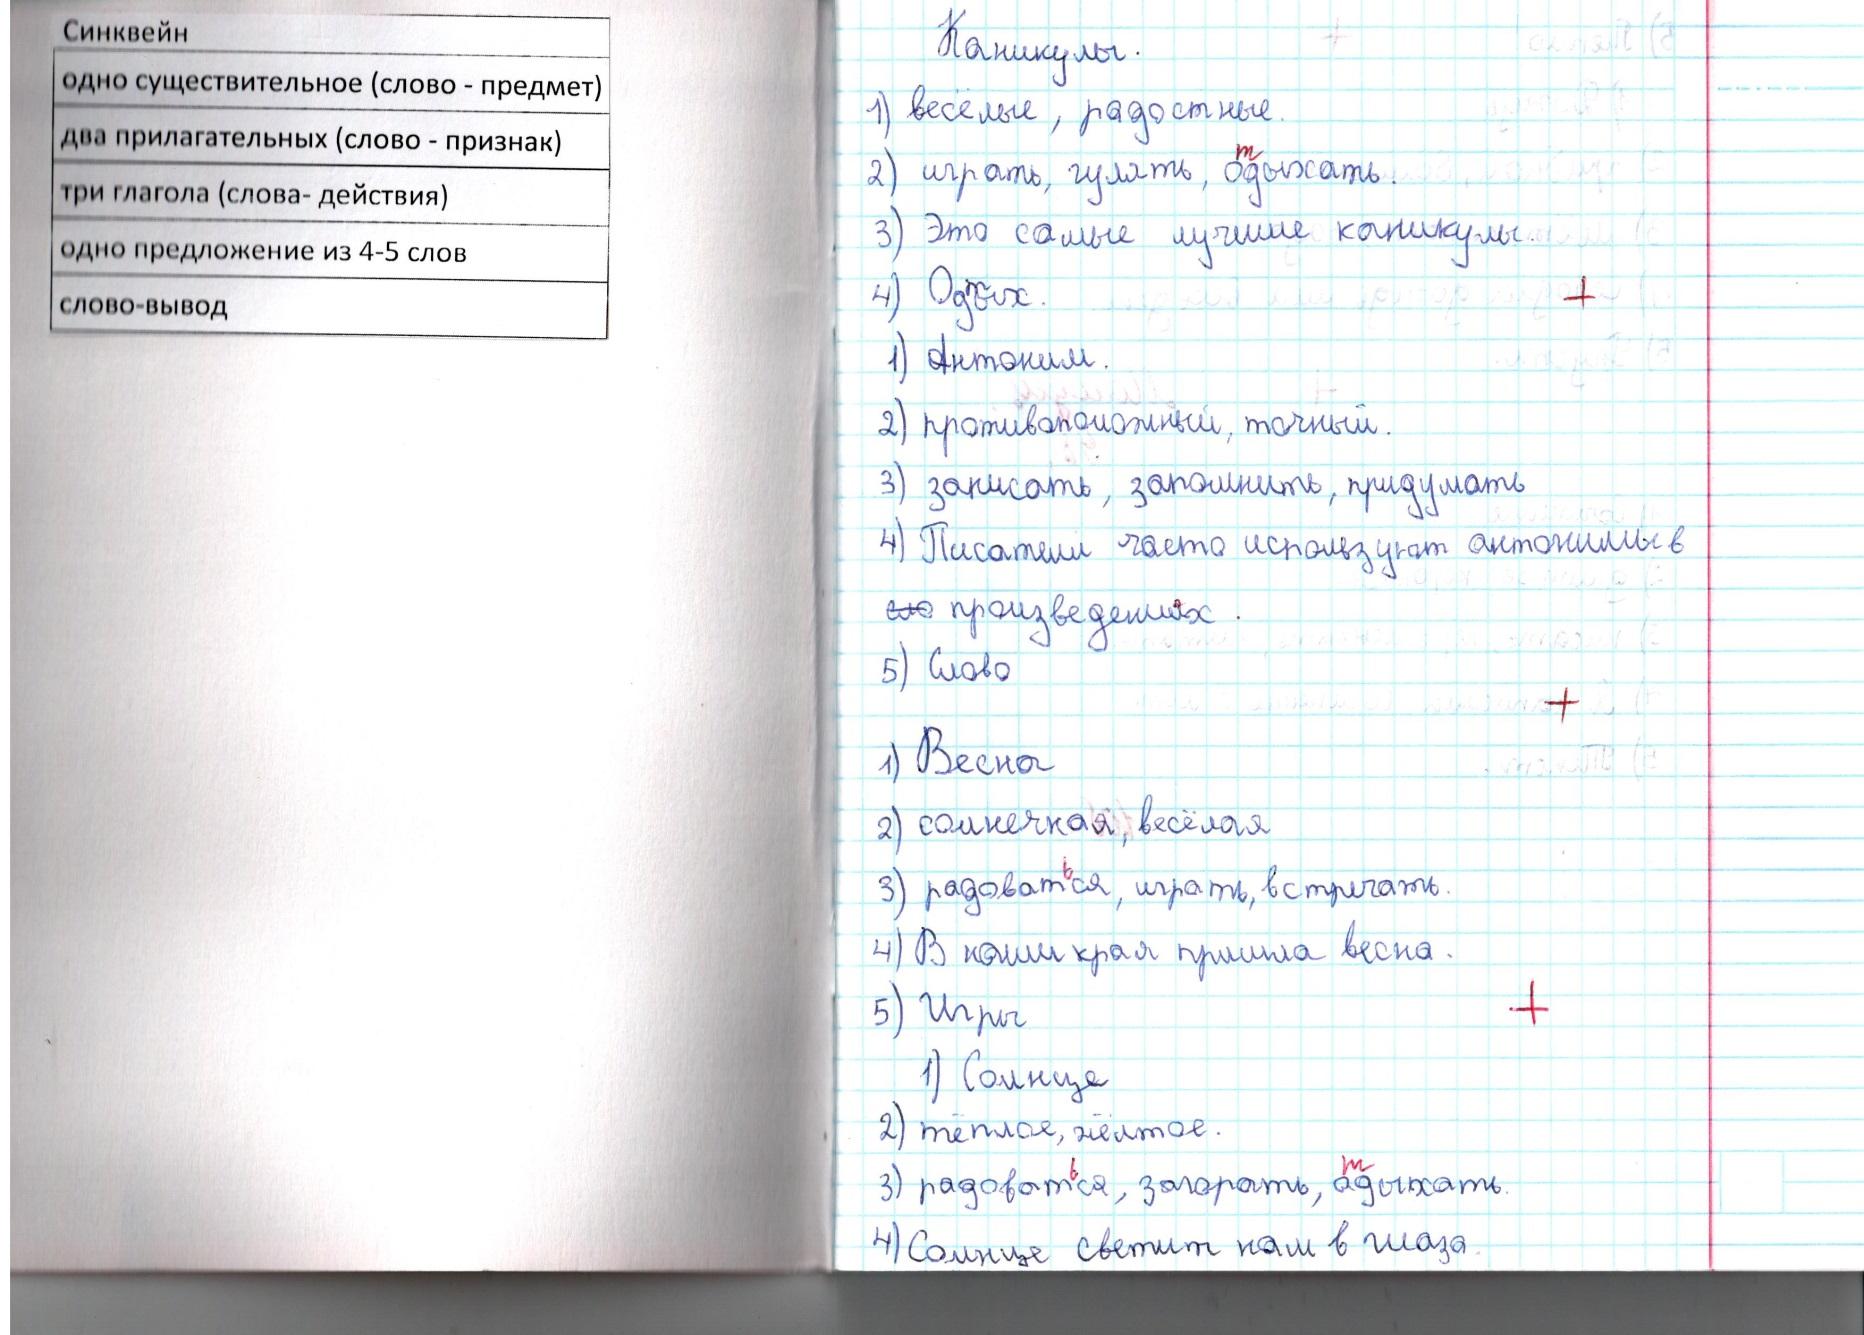 Синквейн
одно существительное (слово - предмет)
два прилагательных (слово - признак)
три глагола (слова- действия)
одно предложение из 4-5 слов
слово-вывод
Каникулы.
1) весёлые, радостные.
т
2) играть, гулять, одыхать.
3) Это самые лучшие каникулы.
4) Одых.
+
1) Антоним.
2) противоположный, точный.
3) записать, запомнить, придумать
4) Писатели часто используют антонимы в
произведениях.
5) Слово
+
1) Весна
2) солнечная, весёлая
ь
3) радоватся, играть, встречать.
4) В наши края пришла весна.
5) Игры
+
1) Солнце
2) тёплое, жёлтое.
ь т
3) радоватся, загорать, одыхать.
4) Солнце светит нам в глаза.